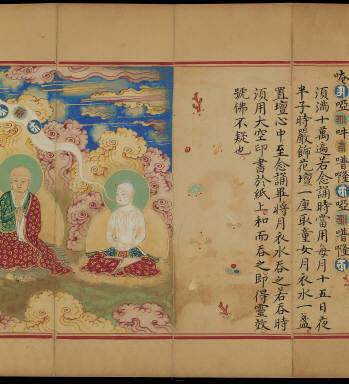 唵 啞 吽
須滿十萬遍若念誦時當用每月十五日夜
半子時嚴飾花壇一座取童女月衣水一盞
置壇心中至念誦畢將月衣水吞之若吞時
須用大空印書於紙上和而吞之即得靈效
號佛不疑也